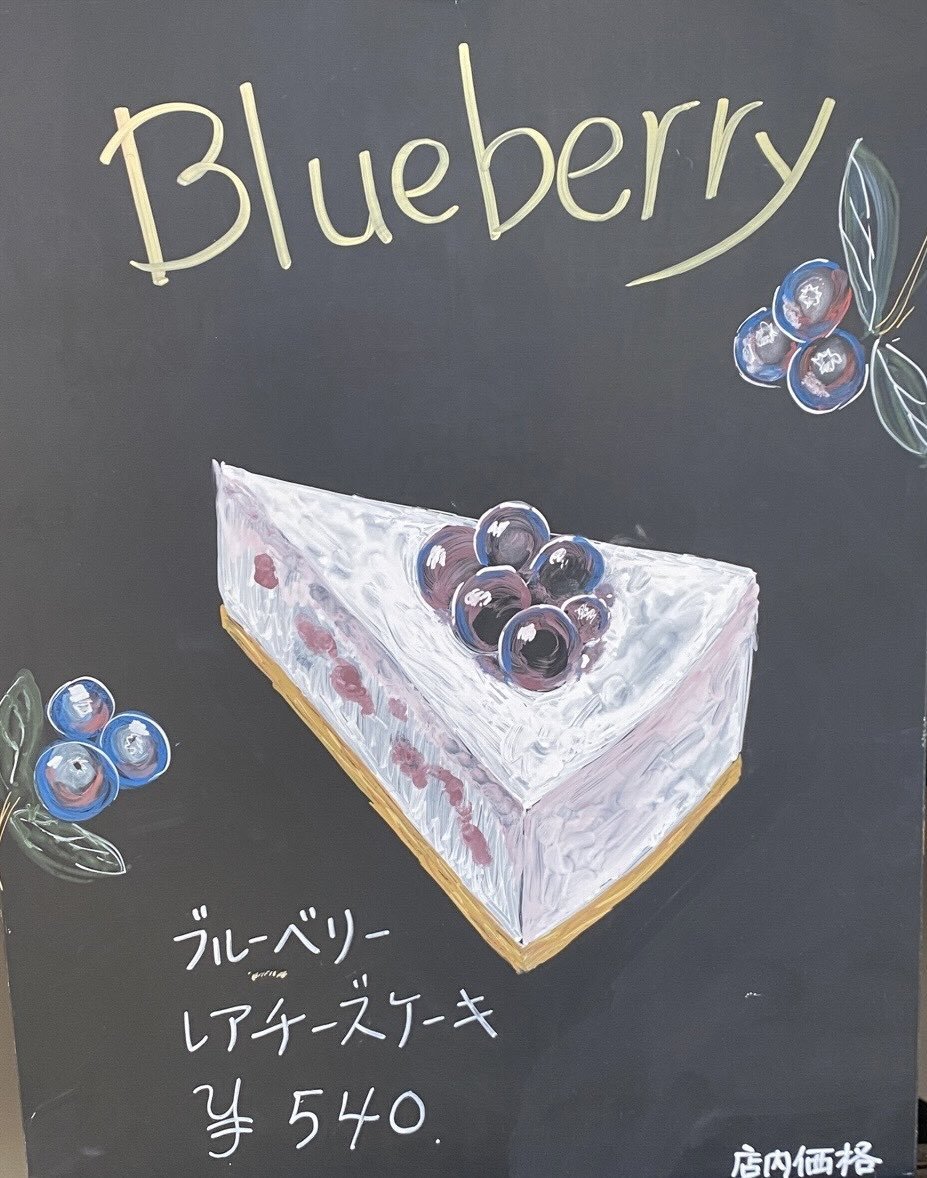 Blueberry
ブルーベリー
レアチーズケーキ
¥540.
店内価格